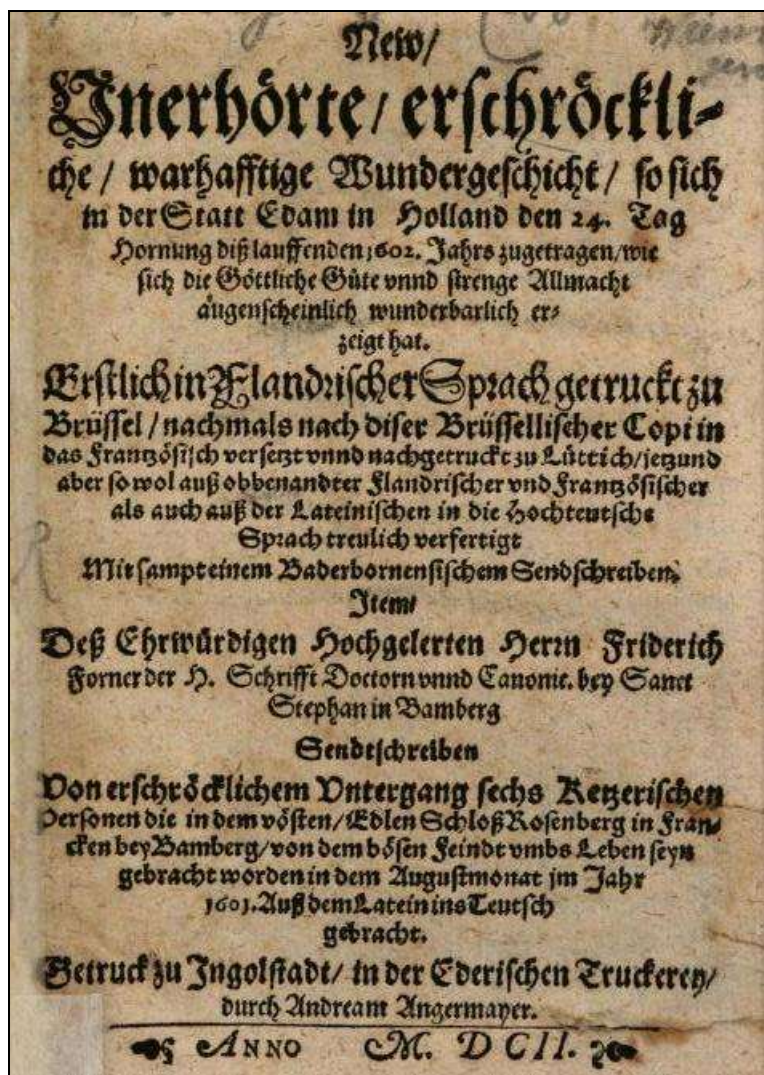 New/
Vnerhörte/ erschröckli-
che / warhafftige Wundergeschicht / so sich
in der Statt Edam in Holland den 24. Tag
Hornung diß lauffenden 1602. Jahrs zugetragen/ wie
sich die Göttliche Güte vnnd strenge Allmacht
augenscheinlich wunderbarlich er-
zeigt hat.
Erstlich in Flandrischer Sprach getruckt zu
Brüssel / nachmals nach diser Brüssellischer Copi in
das Frantzösisch versetzt vnnd nachgetruckt zu Lüttich/ jetzund
aber so wol auß obbenandter Flandrischer vnd Frantzösischer
als auch auß der Lateinischen in die Hochteutsche
Sprach treulich verfertigt
Mit sampt einem Baderbornensischem Sendschreiben.
Item/
Deß Ehrwürdigen Hochgelerten Herrn Friderich
Forner der H. Schrifft Doctorn vnnd Canonic. bey Sanct
Stephan in Bamberg
Sendtschreiben
Von erschröcklichem Vntergang sechs Ketzerischen
Personen die in dem vösten/ Edlen Schloß Rosenberg in Fran-
cken bey Bamberg/ von dem bösen Feindt vmbs Leben seyn
gebracht worden in dem Augustmonat im Jahr
1601. Auß dem Latein ins Teutsch
gebracht.
Getruck zu Ingolstadt/ in der Ederischen Truckerey/
durch Andream Angermayer.
ANNO M. DCII.